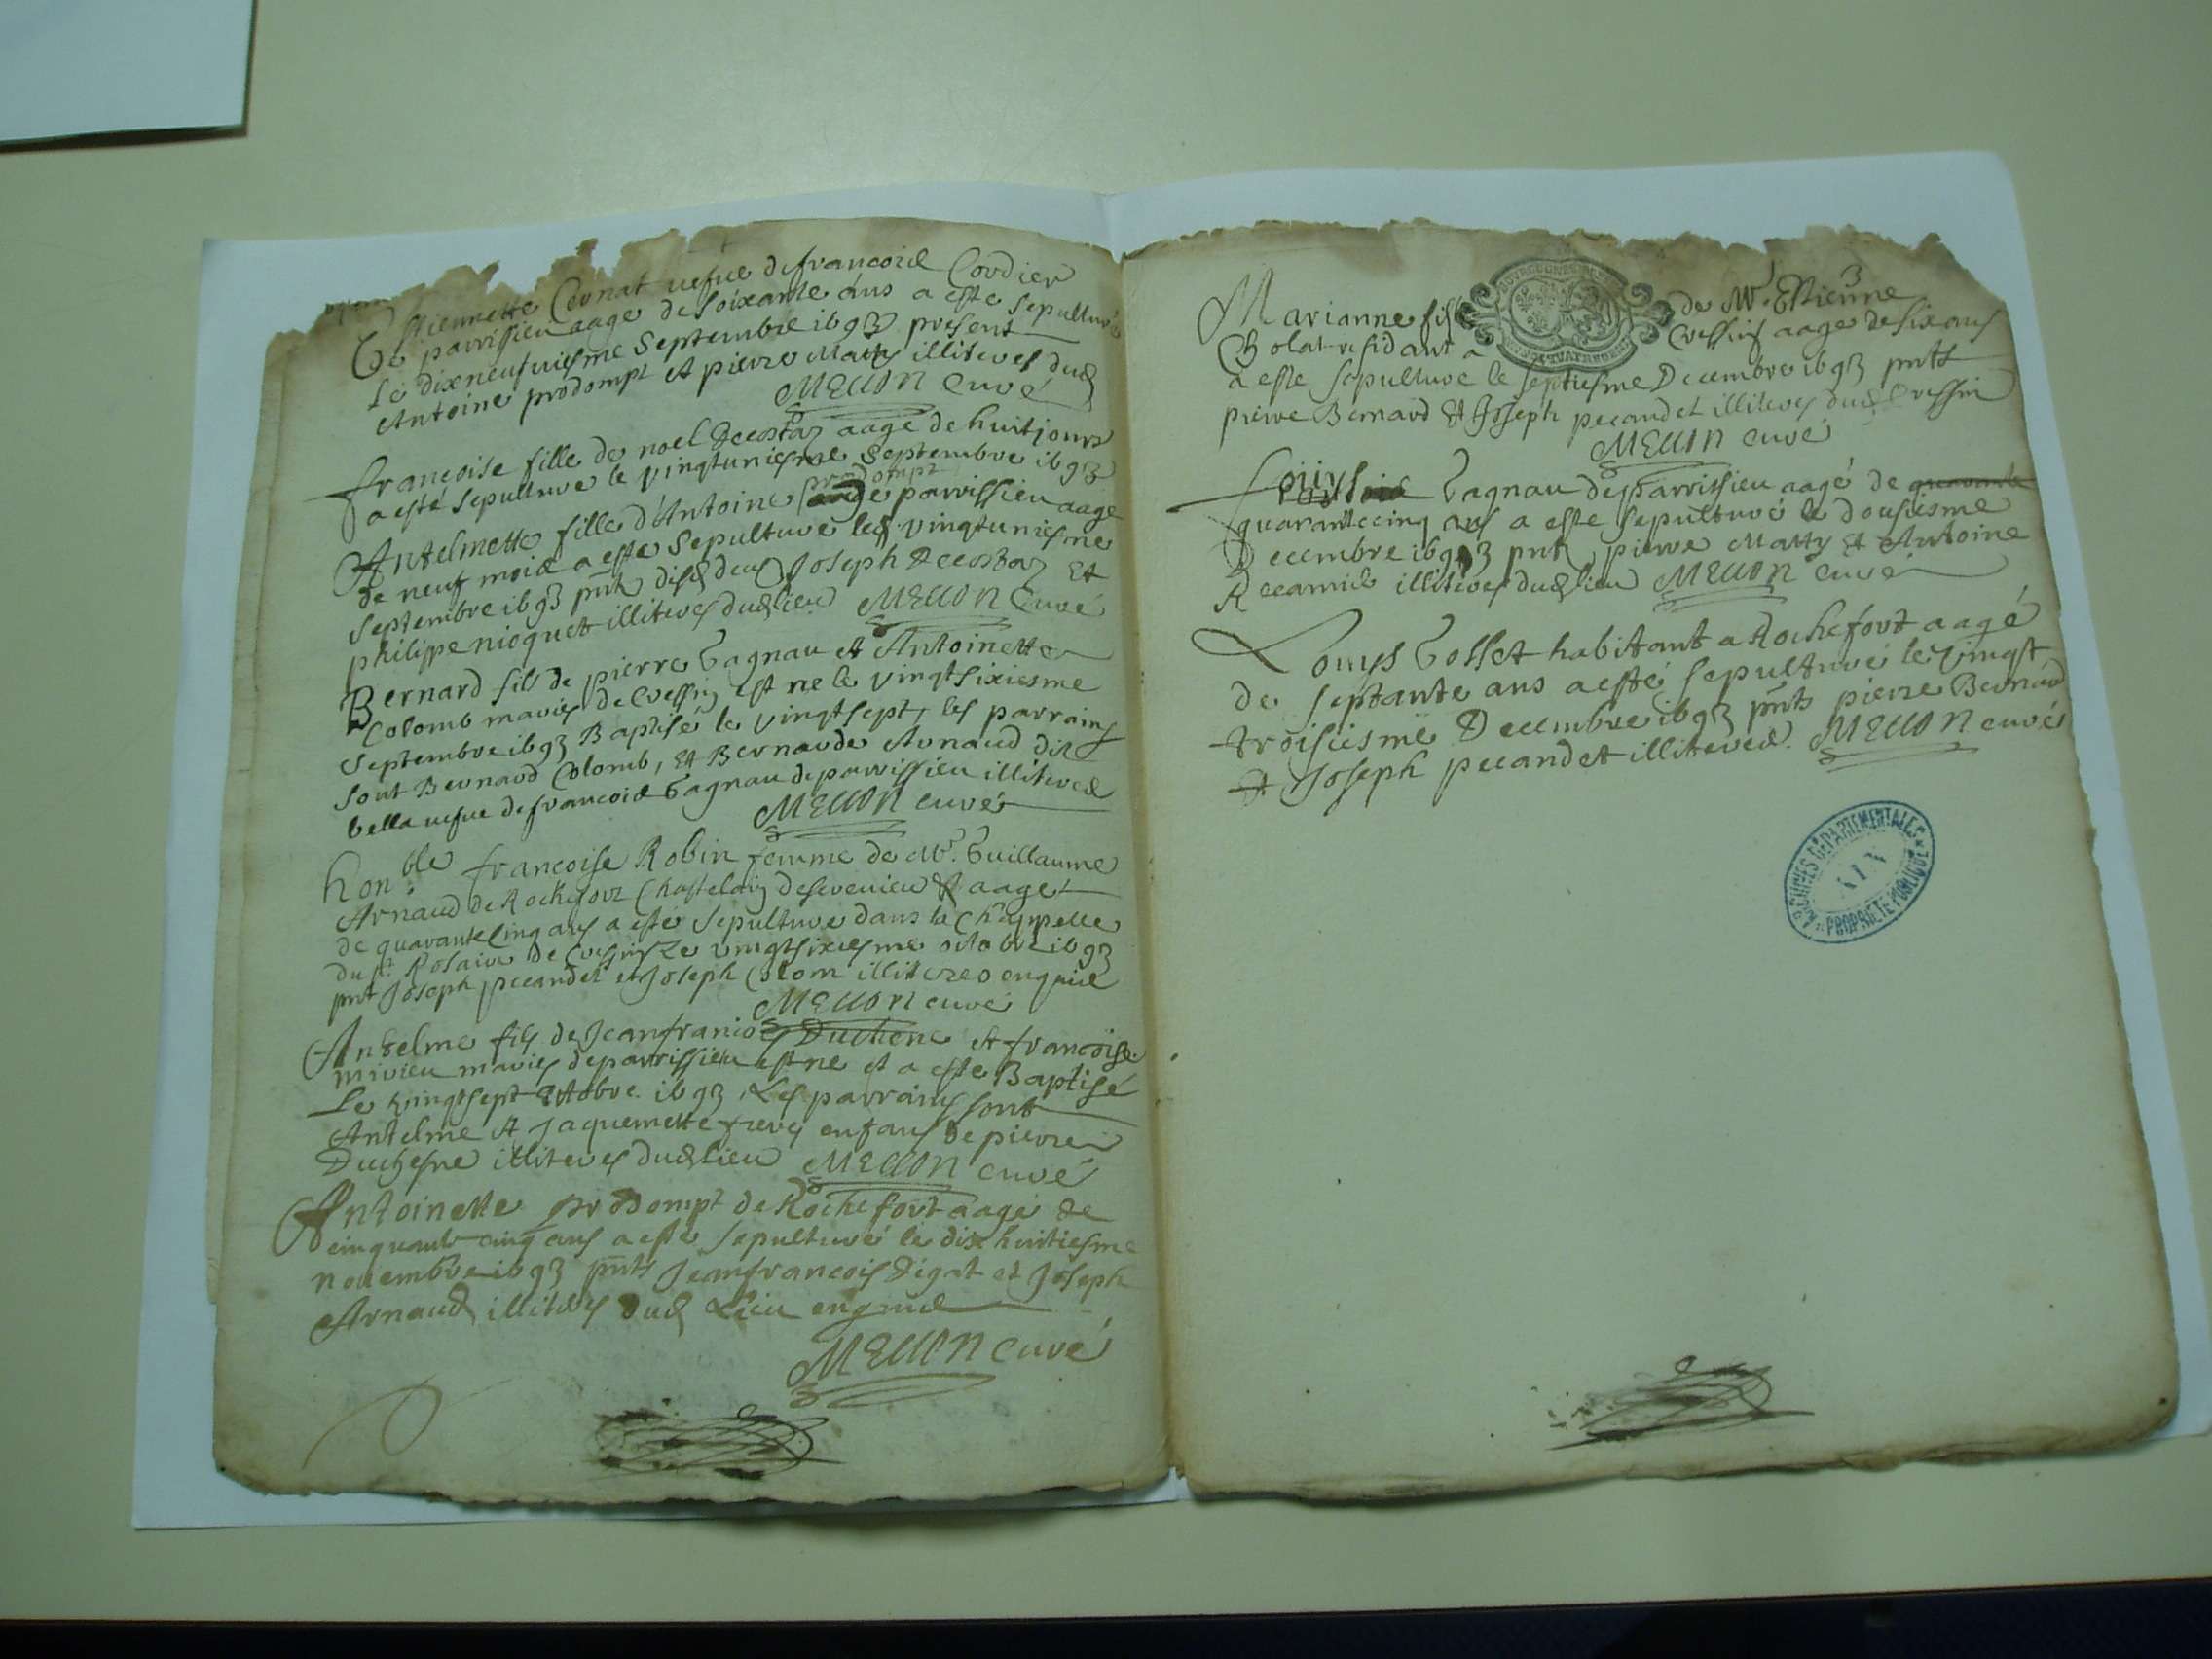 Estiennette Cornat vefue de francois Cordier
de parrissieu aage de soixante ans a este sepulturé
le dixneufuiesme Septembre 1693 present
Antoine prodompt et pierre Matty illiteres dud
MELLON curé
françoise fille de noel Decostaz aage de huit jours
a esté sepulture le vingtuniesme Septembre 1693
prodompt
Antelmette fille d'Antoine de parrissieu aage
de neuf mois a este Sepulture led. vingtuniesme
Septembre 1693 pnt Joseph Decostaz Et
philippe nicquet illiteres dud lieu MELLON curé
Bernard fils de pierre Gagnau et Antoinette
Colomb mariés de Cressin est ne le vingtsixiesme
Septembre 1693 Baptisé le vingtsept, les parrains
sont Bernard Colomb, Et Bernarde Arnaud dit
bella vefue de francois Gagnau de parrissieu illiteres
MELLON curé
honble francoise Robin femme de Mr. Guillaume
Arnaud de Rochefort Chastelain de aage
de quarantecinq ans a este sepulture dans la Chappelle
du st Rosaire de Cressin Le vingtsixiesme octobre 1693
pnt Joseph pecandet et Joseph Colom illiteres
MELLON curé
Antelme fils de Jeanfrancois Duchene et francoise
mivieu mariés de parrissieu est ne et a este Baptisé
Le vingtsept octobre 1693, Les parrains sont
Antelme et Jaquemette freres enfans de pierre
Duchesne illiteres dud lieu MELLON curé
Antoinette prodompt de Rochefort aagé de
cinquante cinq ans a este sepulturé le dix huitiesme
novembre 1693 pnts Jeanfrancois Digat et Joseph
Arnaud illiteres dud Lieu
MELLON curé
3
Marianne fille de Mr. Estienne
Cholat residant a Cressin aage de six ans
a este sepulture le septiesme Decembre 1693 pnts
pierre Bernard Et Joseph pecandet illiteres dud Cressin
MELLON curé
Louys Gagnau de parrissieu aagé de quarante
quarantecinq ans a este sepulturé le dousiesme
Decembre 1693 pnts pierre Matty Et Antoine
illiteres dud lieu MELLON curé
Louys Gosset habitant a Rochefort aagé
de septante ans a esté sepulturé le vingt
troisiesme Decembre 1693 pnts pierre Bernard
et Joseph pecandet illiteres. MELLON curé
ARCHIVES DÉPARTEMENTALES
AIN
PROPRIÉTÉ PUBLIQUE